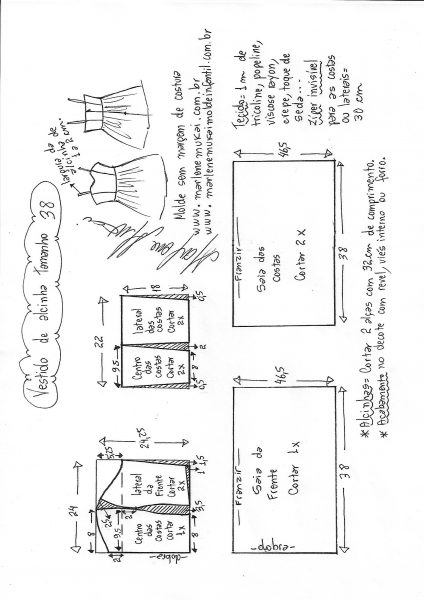 Vestido de alcinha Tamanho 38
largura da
alcinha de
1 a 2 cm.
Molde sem margem de costura
www.marlenemukai.com.br
www.marlenemukaimoldeinfantil.com.br
24
8
2
9,5
2,5
2
5,25
24,25
1,5
1
3,5
8
Centro
das
costas
Cortar
1x
lateral
da
Frente
Cortar
2x
dobra
22
9,5
18
0,5
2
8
0,5
Centro
das
costas
Cortar
2x
lateral
das
costas
Cortar
2x
Tecido = 1 m de
tricoline, popeline,
viscose rayon,
crepe, toque de
seda...
Zíper invisível
para as costas
ou laterais =
30 cm
Franzir
46,5
Saia da
Frente
Cortar 1x
38
dobra
Franzir
46,5
Saia das
Costas
Cortar 2x
38
* Alcinhas = Cortar 2 alças com 32 cm de comprimento.
* Acabamento no decote com revel, viés interno ou forro.